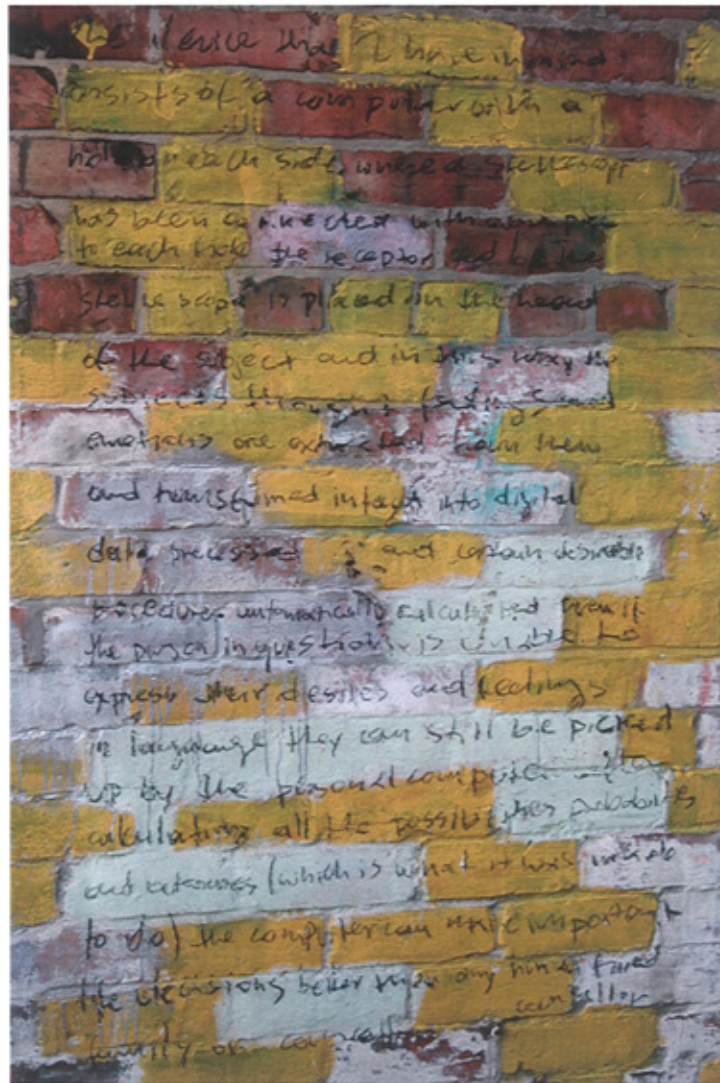 the device that I have invented
consists of a computer with a
hole on each side, where a stethoscope
has been connected with
to each hole the receptor end of the
stethoscope is placed on the head
of the subject and in this way the
subjects thought feelings and
emotions are extracted from them
and transformed intact into digital
data processed and certain desirable
procedures automatically calculated even if
the person in question is unable to
express their desires and feelings
in language they can still be picked
up by the personal computer after
calculating all the possibilities probabilities
and outcomes (which is what it was made
to do) the computer can make important
life decisions better than any
councellor
family or